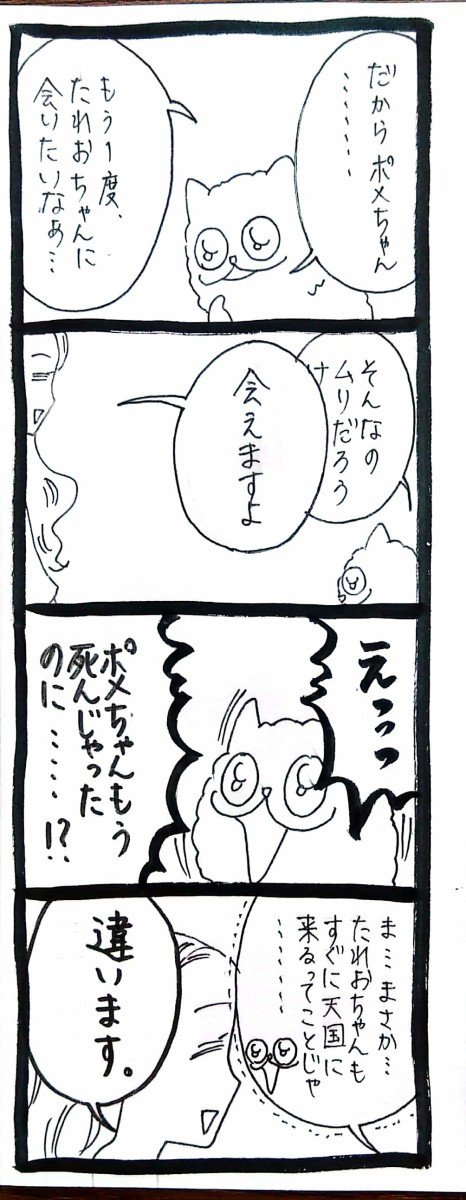 だからポメちゃん
…………
もう1度、
たれおちゃんに
会いたいなあ…
そんなの
ムリだろう
け
会えますよ
えっっっ
ポメちゃんもう
死んじゃった
のに……!?
ま…まさか…
たれおちゃんも
すぐに天国に
来るってことじゃ
…………
違います。